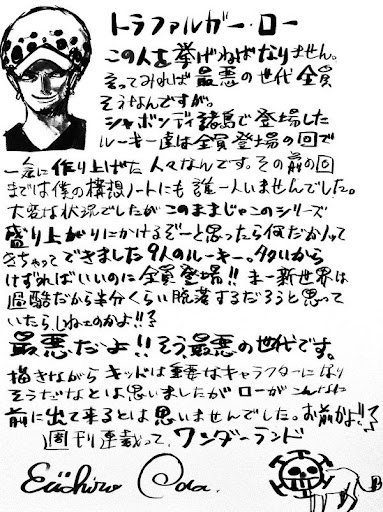 トラファルガー・ロー
この人を挙げねばなりません。
言ってみれば最悪の世代全員
そうなんですが。
シャボンディ諸島で登場した
ルーキー達は全員登場の回で
一気に作り上げた人々なんです。その前の回
までは僕の構想ノートにも誰一人いませんでした。
大変な状況でしたがこのままじゃこのシリーズ
盛り上がりにかけるぞーと思ったら何だか入って
きちゃってできました9人のルーキー。タタいから
けずればいいのに全員登場!!まー新世界は
過酷だから半分くらい脱落するだろうと思って
いたら、しねェのかよ!!?
最悪だよ!!そう最悪の世代です。
描きながらキッドは重要なキャラクターになり
そうだなとは思いましたがローがこんなに
前に出て来るとは思いませんでした。お前かよ!!?
週刊連載って、ワンダーランド
Eiichiro Oda.